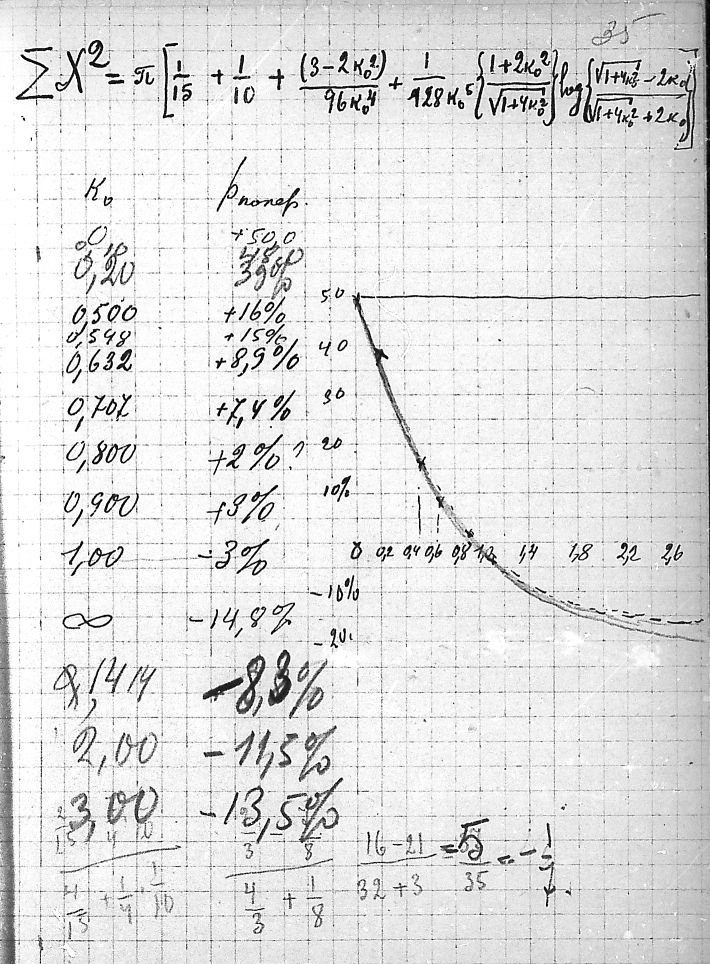 35
∑X² = π [ 1/15 + 1/10 + (3-2K₀²)/96K₀⁴ + 1/928K₀⁵ { 1+2K₀² / √1+4K₀² } log { √1+4K₀² - 2K₀ / √1+4K₀² + 2K₀ } ]
K₀ pпопер.
0 +50,0
0,10 48,0
0,20 39%
0,500 +16%
0,548 +15%
0,632 +8,9%
0,707 +7,4%
0,800 +2%?
0,900 +3%
1,00 -3%
∞ -14,8%
1,414 -8,3%
2,00 -11,5%
3,00 -13,5%
50
40
30
20
10%
0 0,2 0,4 0,6 0,8 1,0 1,4 1,8 2,2 2,6
-10%
-20
4/15 + 1/4 · 1/10
4/3 + 1/8
16-21 / 32+3 = 5/35 = - 1/7.